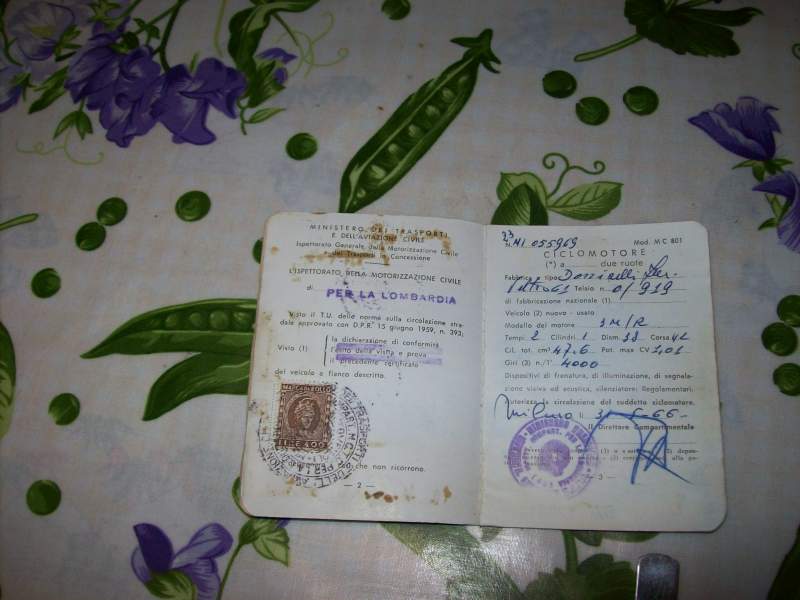 MINISTERO DEI TRASPORTI
E DELL'AVIAZIONE CIVILE
Ispettorato Generale della Motorizzazione Civile
e dei Trasporti in Concessione
L'ISPETTORATO DELLA MOTORIZZAZIONE CIVILE
di PER LA LOMBARDIA
Visto il T.U. delle norme sulla circolazione stra-
dale approvato con D.P.R. 15 giugno 1959, n. 393;
la dichiarazione di conformità
Visto (1) l'esito della visita e prova
il precedente certificato
del veicolo a fianco descritto.
MARCA DA BOLLO
LIRE 400
che non ricorrono.
— 2 —
23
N. MI 055969 Mod. MC 801
CICLOMOTORE
(*) a due ruote
Fabbrica e tipo
Telaio n. 01919
di fabbricazione nazionale (1)
Veicolo (2) nuovo - usato
Modello del motore 3M/R
Tempi 2 Cilindri 1 Diam. 38 Corsa 42
Cil. tot. cm³ 47.6 Pot. max CV 1,01
Giri (3) n./1' 4000
Dispositivi di frenatura, di illuminazione, di segnala-
zione visiva ed acustica, silenziatore: Regolamentari.
Autorizza la circolazione del suddetto ciclomotore.
Milano li 66
Il Direttore Compartimentale
3 —